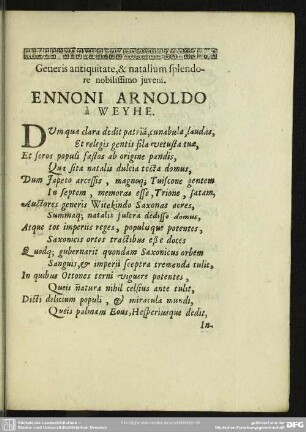 Generis antiquitate, & natalium splendo-
re nobilissimo juveni.
ENNONI ARNOLDO
à WEYHE.
DUm qua clara dedit patriã, cunabula, laudas,
Et relegis gentis fila vetusta tuæ,
Et seros populi fastos ab origine pandis,
Quæ sita natalis dulcia tecta domus,
Dum Japeto arcessis, magnoq; Tuiscone gentem
In septem, memoras esse, Trione, satam,
Auctores generis Witekindo Saxonas acres,
Summaq; natalis fulcra dedisse domus,
Atque tot imperiis reges, populisque potentes,
Saxonicis ortos tractibus esse doces
Quodq; gubernarit quondam Saxonicus orbem
Sanguis, & imperii sceptra tremenda tulit,
In quibus Ottones terni viguere potentes,
Queis natura nihil celsius ante tulit,
Dicti delicium populi, & miracula mundi,
Queis palmam Eous, Hesperiusque dedit,
In-